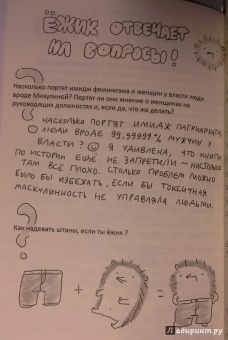 ЁЖИК ОТВЕЧАЕТ
НА ВОПРОСЫ!
Насколько портят имидж феминизма и женщин у власти люди
вроде Мизулиной? Портят ли они мнение о женщинах на
руководящих должностях и, если да, что же делать?
НАСКОЛЬКО ПОРТЯТ ИМИДЖ ПАТРИАРХАТА
ЛЮДИ ВРОДЕ 99,99999% МУЖЧИН У
ВЛАСТИ? Я УДИВЛЕНА, ЧТО КНИГИ
ПО ИСТОРИИ ЕЩЁ НЕ ЗАПРЕТИЛИ – НАСТОЛЬКО
ТАМ ВСЁ ПЛОХО. СТОЛЬКО ПРОБЛЕМ МОЖНО
БЫЛО БЫ ИЗБЕЖАТЬ, ЕСЛИ БЫ ТОКСИЧНАЯ
МАСКУЛИННОСТЬ НЕ УПРАВЛЯЛА ЛЮДЬМИ.
Как надевать штаны, если ты ёжик?
+ =
Лабиринт.ру